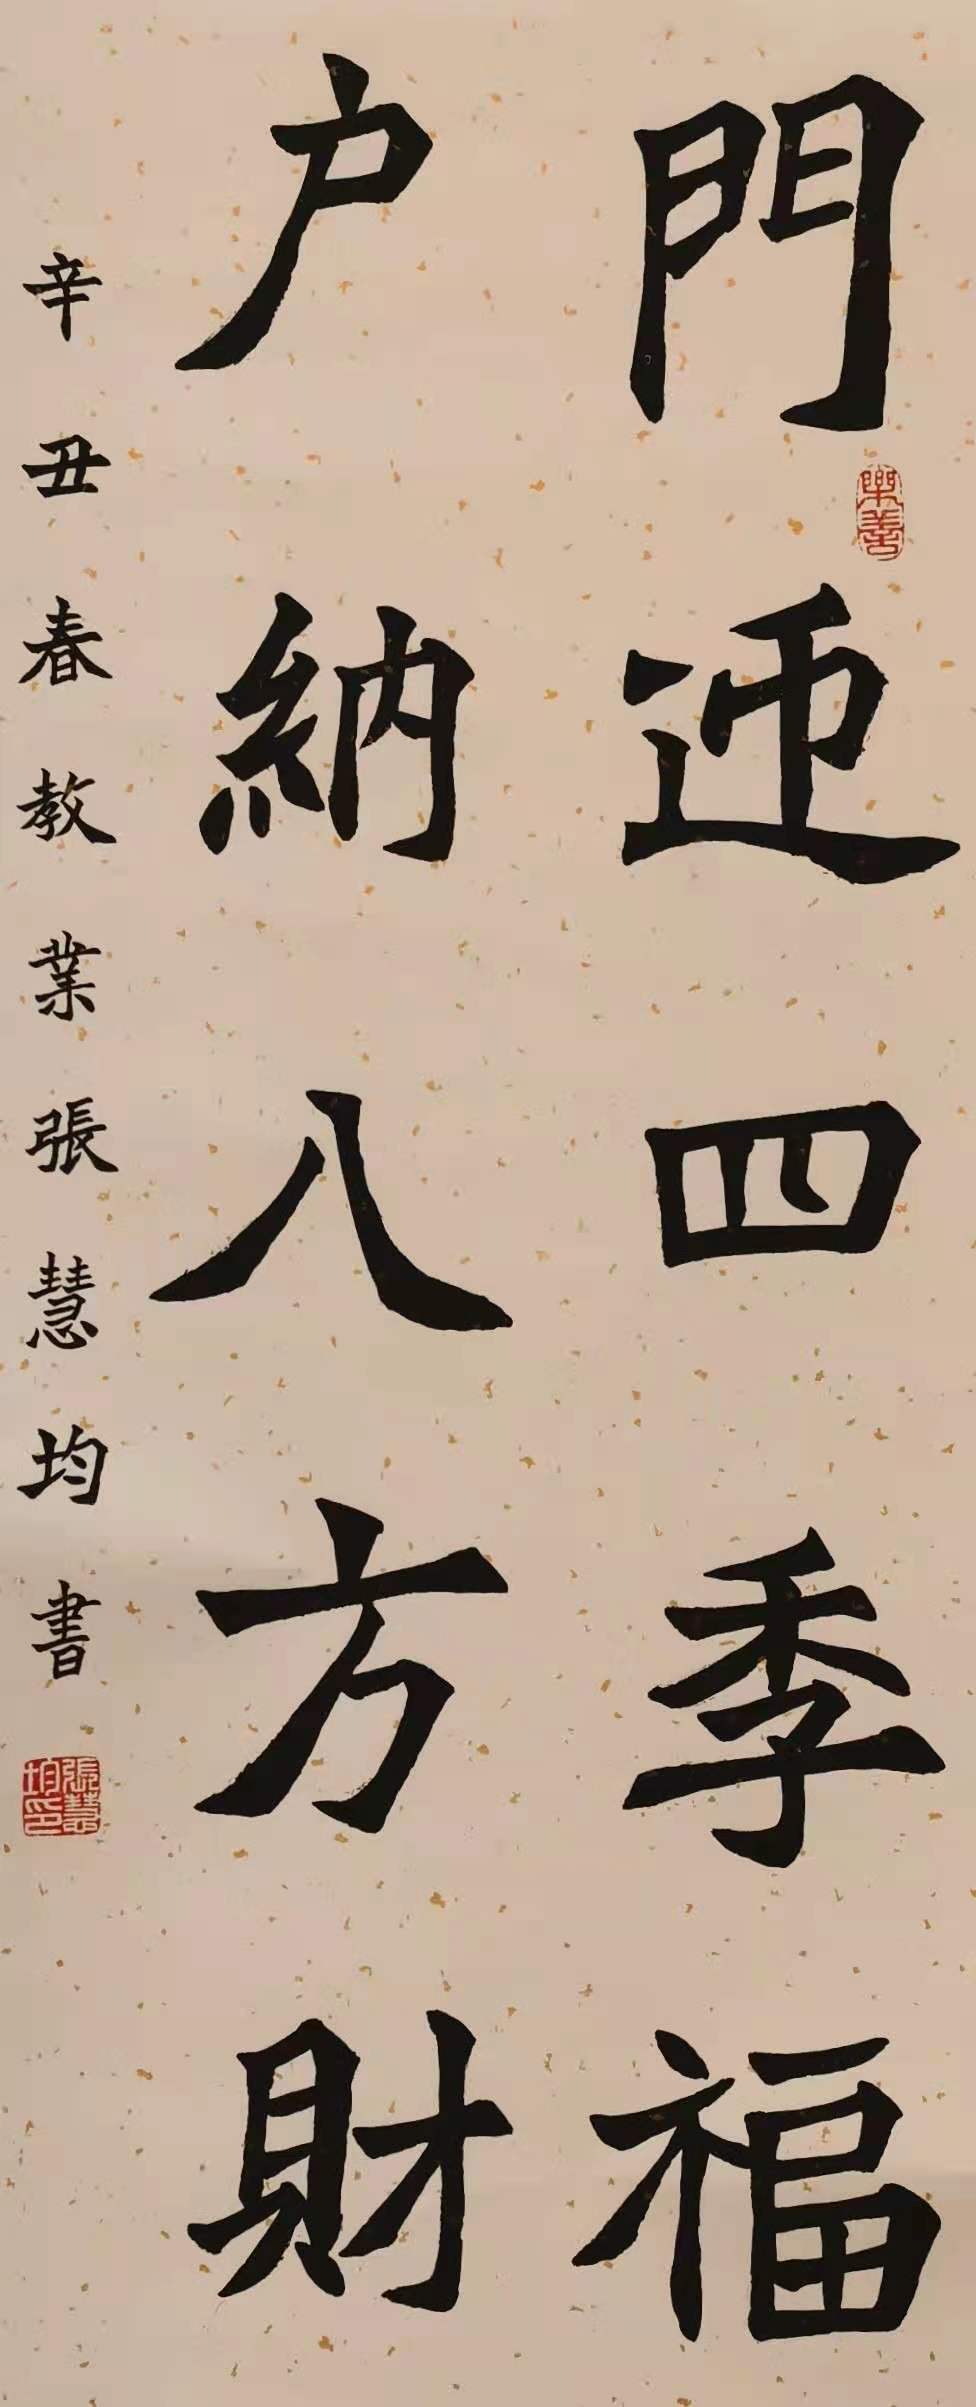 門迎四季福
樂善
户納八方財
辛丑春教業張慧均書
張慧均印